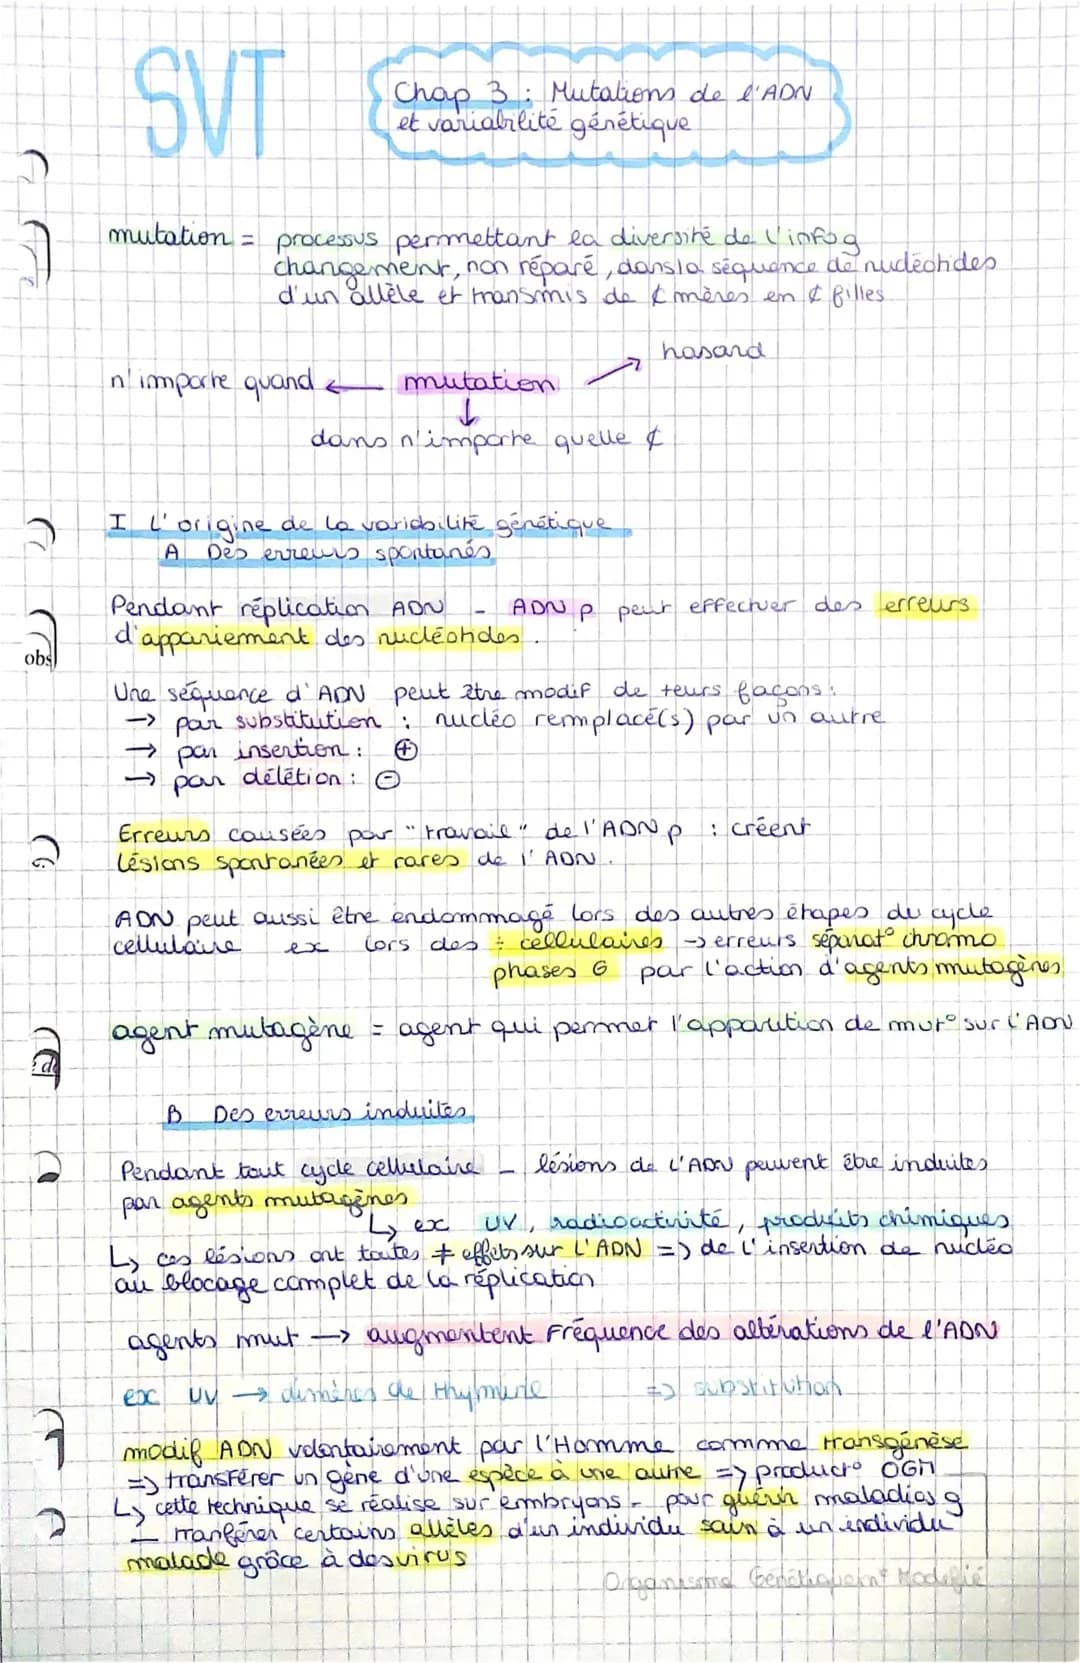 SVT
Chap 3 : Mutations de l'ADN
et variabilité génétique
mutation = processus permettant la diversité de l'info g
changement, non réparé, dans la séquence de nucléotides
d'un allèle et transmis de ¢ mères en ¢ filles
hasard
n'importe quand ← mutation
dans n'importe quelle ¢
I L'origine de la variabilité génétique
A Des erreurs spontanés
obs
Pendant réplication ADN - ADN p peut effectuer des erreurs
d'appariement des nucléotides.
Une séquence d'ADN peut être modif de +eurs façons :
→ par substitution : nucléo remplacé(s) par un autre
→ par insertion : ⊕
→ par délétion : ⊖
Erreurs causées par "travail" de l'ADN p : créent
lésions spontanées et rares de l'ADN.
ADN peut aussi être endommagé lors des autres étapes du cycle
cellulaire ex lors des ÷ cellulaires → erreurs séparat° chromo
phases G par l'action d'agents mutagènes
agent mutagène = agent qui permet l'apparition de mut° sur l'ADN
B Des erreurs induites
Pendant tout cycle cellulaire - lésions de l'ADN peuvent être induites
par agents mutagènes
↳ ex UV, radioactivité, produits chimiques
↳ ces lésions ont toutes ≠ effets sur l'ADN => de l'insertion de nucléo
au blocage complet de la réplication
agents mut → augmentent fréquence des altérations de l'ADN
ex UV → dimères de thymine => substitution
modif ADN volontairement par l'Homme comme transgénèse
=> transférer un gène d'une espèce à une autre => product° OGM
↳ cette technique se réalise sur embryons - pour guérir maladies g
- tranférer certains allèles d'un individu sain à un individu
malade grâce à des virus
Organisme Génétiquem° Modifié